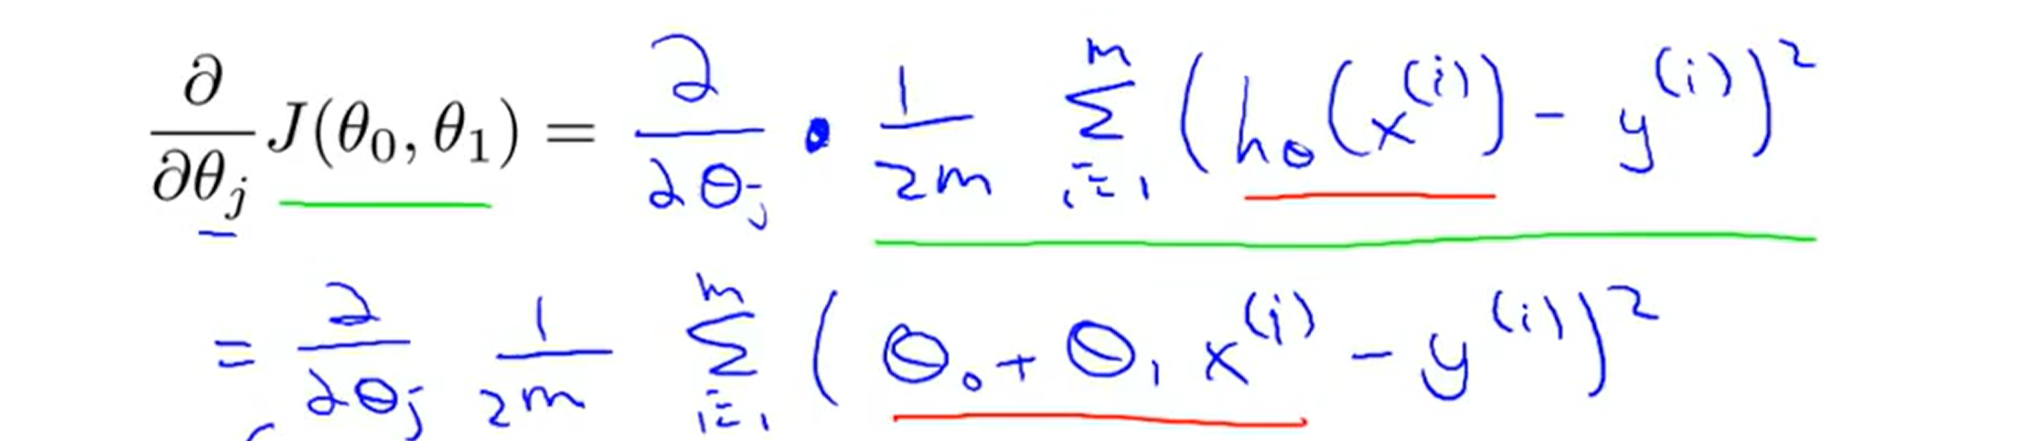 ∂/∂θ_j J(θ_0, θ_1) = ∂/∂θ_j · 1/2m ∑_{i=1}^{m} (h_θ(x^{(i)}) - y^{(i)})^2
= ∂/∂θ_j 1/2m ∑_{i=1}^{m} (θ_0 + θ_1 x^{(i)} - y^{(i)})^2